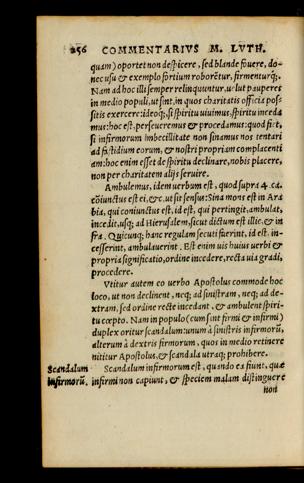 256 COMMENTARIVS M. LVTH.
quam) oportet non despicere, sed blande fouere, do-
nec usu & exemplo fortium roborẽtur, firmenturq́;.
Nam ad hoc illi semper relinquuntur, uelut pauperes
in medio populi, ut sint, in quos charitatis officia pos-
sitis exercere: ideoq́;, si spiritu uiuimus, spiritu inceda
mus: hoc est, perseueremus & procedamus: quod fiet,
si infirmorum imbecillitate non sinamus nos tentari
ad fastidium eorum, & nostri propriam complacenti
am: hoc enim esset de spiritu declinare, nobis placere,
non per charitatem alijs seruire.
Ambulemus, idem uerbum est, quod supra 4. ca.
cõiunctus est ei, &c. ut sit sensus: Sina mons est in Ara
bia, qui coniunctus est, id est, qui pertingit, ambulat,
incedit, usq́; ad Hierusalem, sicut dictum est illic. & in
fra. Quicunq; hanc regulam secuti fuerint, id est, in-
cesserint, ambulauerint. Est enim uis huius uerbi &
propria significatio, ordine incedere, recta uia gradi,
procedere.
Vtitur autem eo uerbo Apostolus commode hoc
loco, ut non declinent, neq; ad sinistram, neq; ad de-
xtram, sed ordine recte incedant, & ambulent spiri-
tu cœpto. Nam in populo (cum sint firmi & infirmi)
duplex oritur scandalum: unum à sinistris infirmorũ,
alterum à dextris firmorum, quos in medio retinere
nititur Apostolus, & scandala utraq; prohibere.
Scandalum infirmorũ.
Scandalum infirmorum est, quando ea fiunt, quæ
infirmi non capiunt, & speciem malam distinguere
non